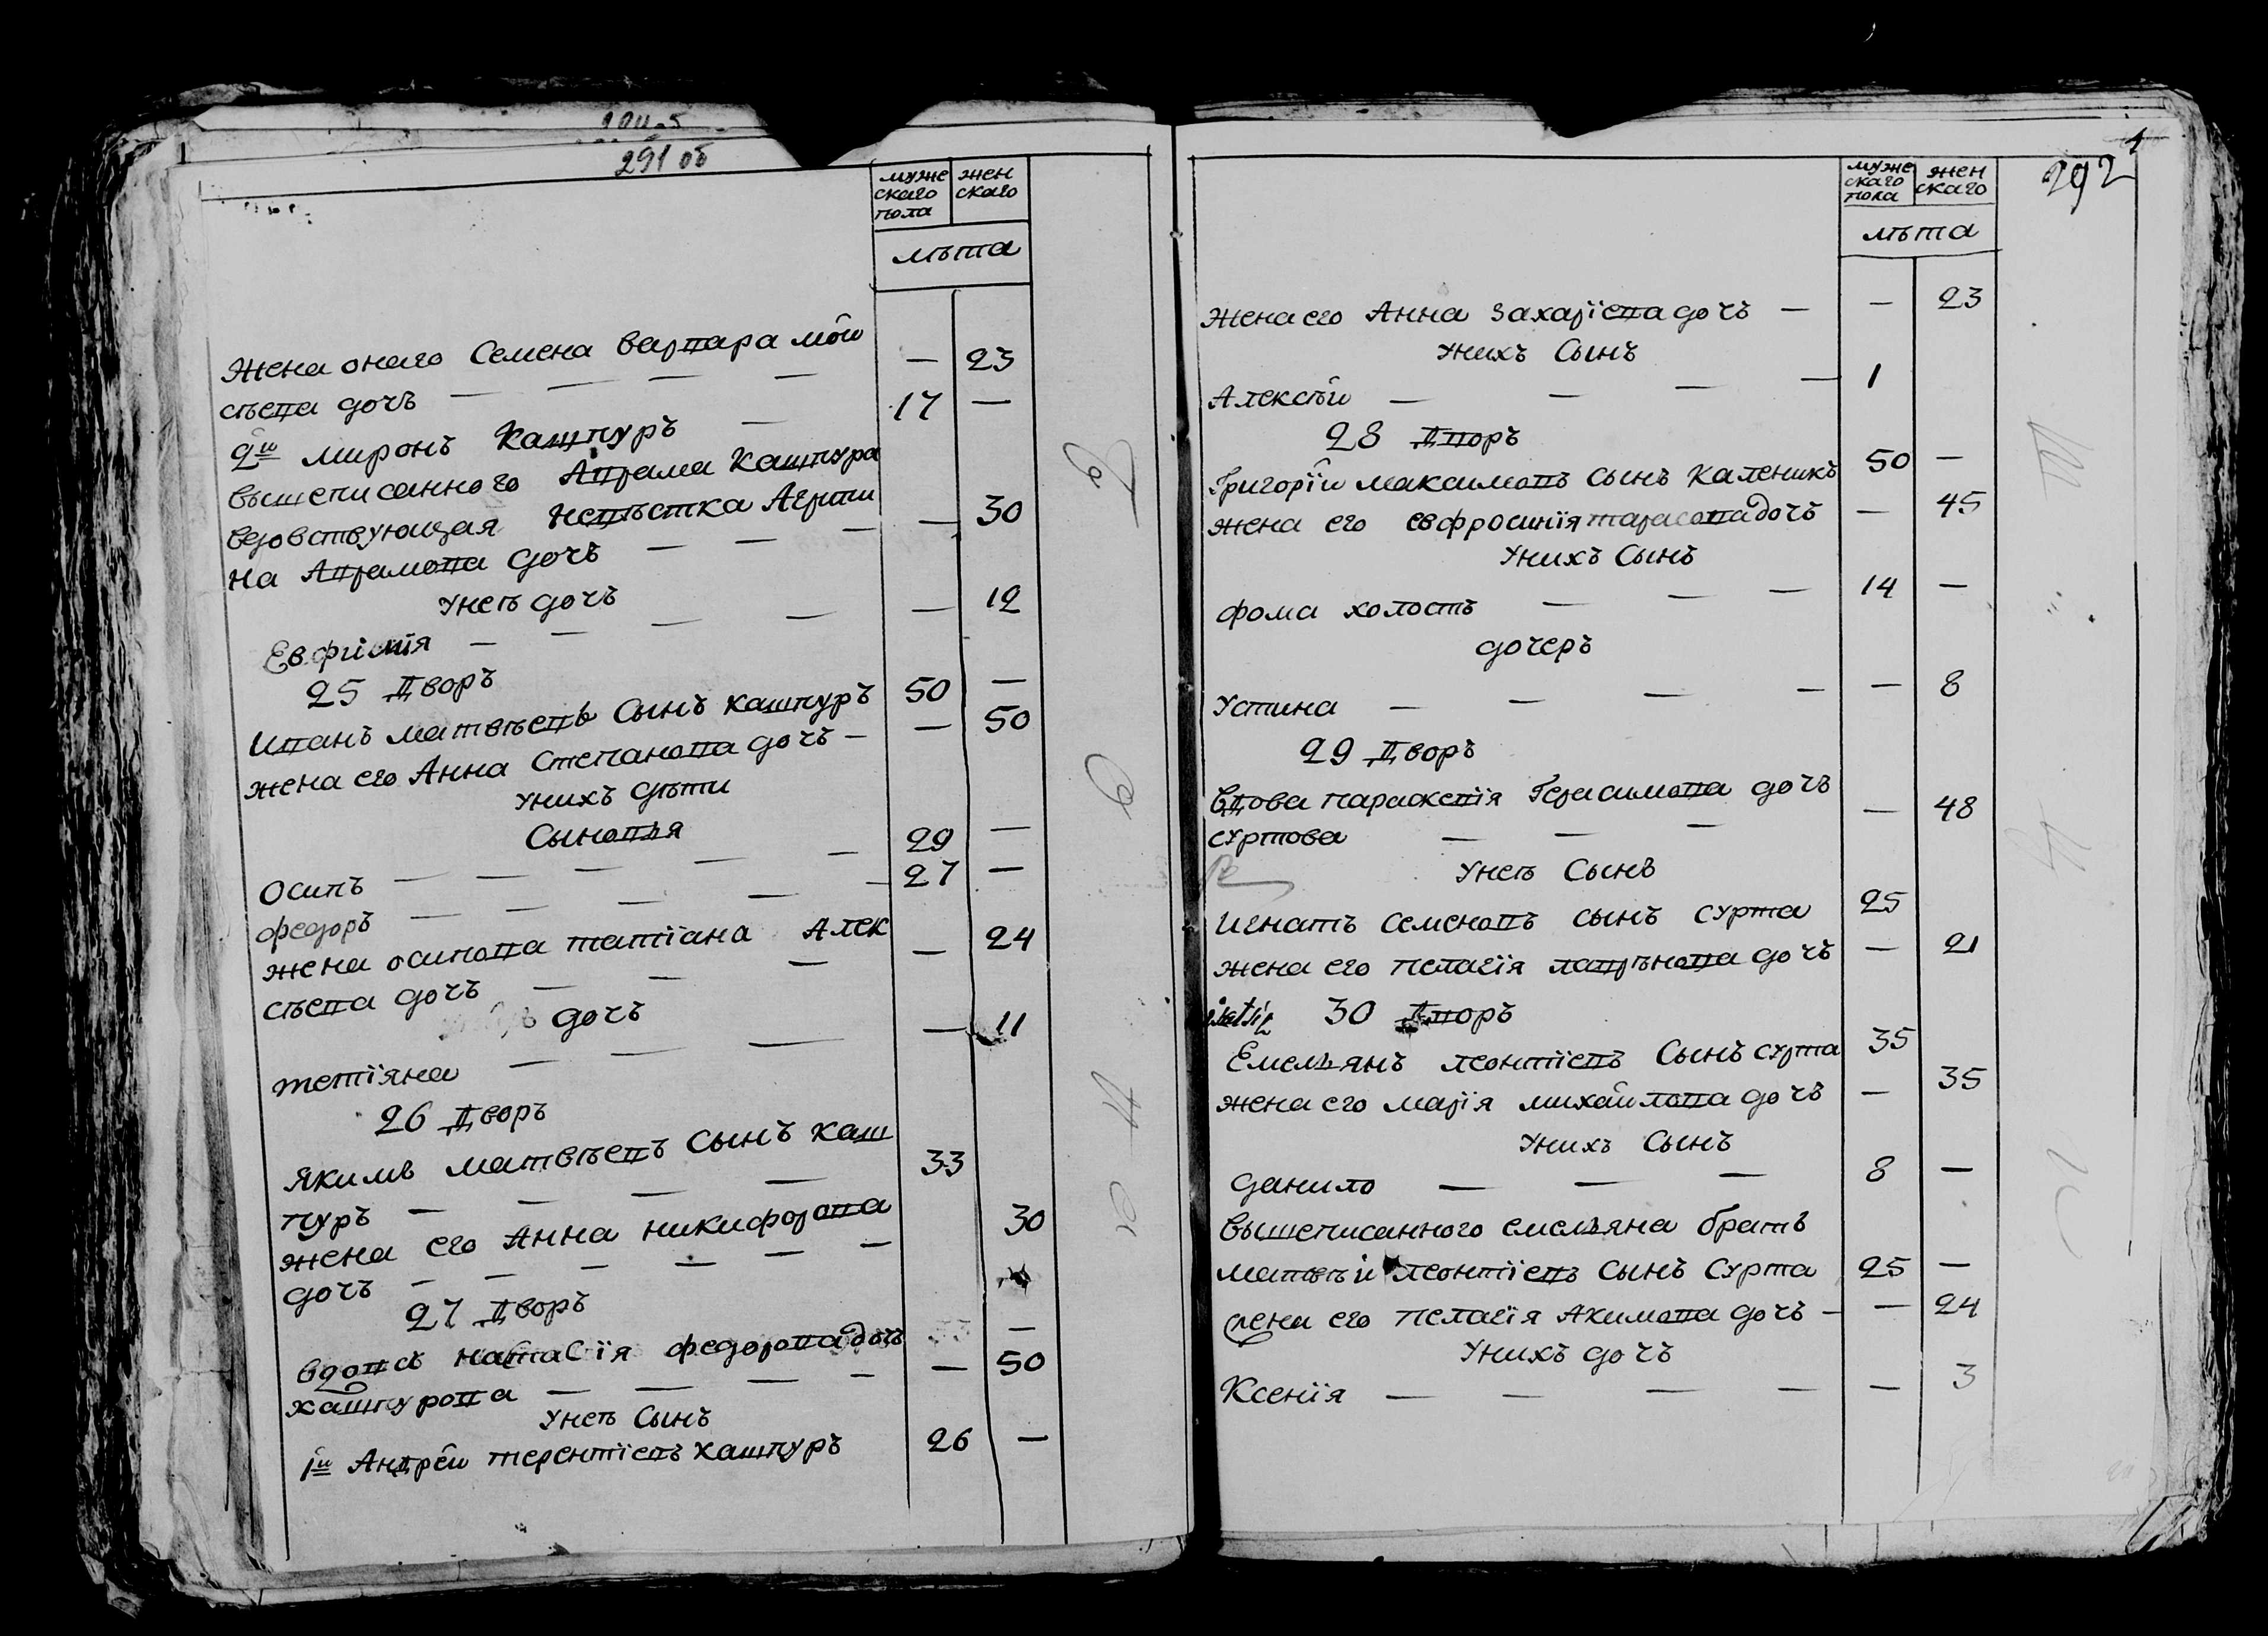 291 об
муже
скаго
пола
жен
скаго
лѣта
жена онаго Семена варвара мои
сѣева дочъ — — — — — 23
2й миронъ Кашпуръ — 17 —
вышеписанного Аврама Кашпура
вдовствующая невѣстка Агрипи
на Аврамова дочъ — — — — 30
Унеѣ дочъ
Евфимія — — — — — 12
25 Дворъ
Иванъ матвѣевъ Сынъ кашпуръ 50 —
жена его Анна Степанова дочъ — — 50
Унихъ дѣти
Сыновья
Осипъ — — — — — 29 —
федоръ — — — — — 27 —
жена осипова татіана Алек
сѣева дочъ — — — — 24
дочъ
тетіяна — — — — 11
26 Дворъ
Якимъ матвѣевъ Сынъ каш
пуръ — — — — 33
жена его Анна никифорова
дочъ — — — — — 30
27 Дворъ
вдова наталія федорова дочъ —
кашпурова — — — — — 50
Унеѣ Сынъ
1й Андрей терентіевъ кашпуръ 26 —
292
муже
скаго
пола
жен
скаго
лѣта
жена его Анна захаріева дочъ — — 23
Унихъ Сынъ
Алексѣй — — — — 1
28 Дворъ
Григорій максимовъ сынъ каленикъ 50 —
жена его евфросинія тарасова дочъ — 45
Унихъ Сынъ
фома холостъ — — — 14 —
дочеръ
Устина — — — — — 8
29 Дворъ
вдова параскевія Герасимова дочъ
суртова — — — — 48
Унеѣ Сынъ
Игнатъ семеновъ сынъ сурта 25
жена его пелагія лаврѣнова дочъ — 21
30 Дворъ
Емельянъ леонтіевъ Сынъ сурта 35
жена его марія михайлова дочъ — 35
Унихъ Сынъ
данило — — — 8 —
вышеписанного емельяна братъ
матвѣй леонтіевъ сынъ Сурта 25 —
жена его пелагія Акимова дочъ — — 24
Унихъ дочъ
Ксенія — — — — — 3